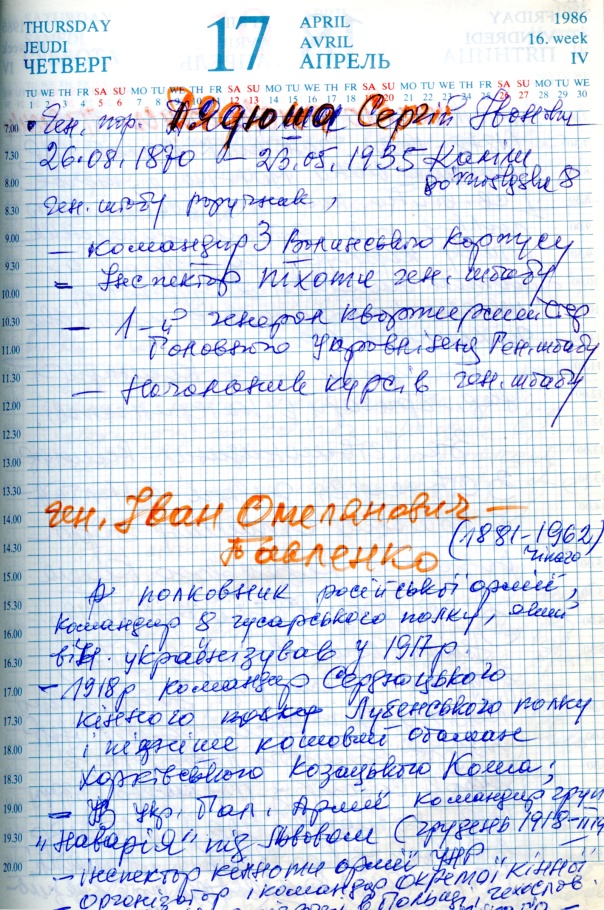 THURSDAY
JEUDI
ЧЕТВЕРГ
17
APRIL
AVRIL
АПРЕЛЬ
1986
16. week
IV
TU WE TH FR SA SU MO TU WE TH FR SA SU MO TU WE TH FR SA SU MO TU WE TH FR SA SU MO TU WE
1 2 3 4 5 6 7 8 9 10 11 12 13 14 15 16 17 18 19 20 21 22 23 24 25 26 27 28 29 30
7.00
7.30
8.00
8.30
9.00
9.30
10.00
10.30
11.00
11.30
12.00
12.30
13.00
13.30
14.00
14.30
15.00
15.30
16.00
16.30
17.00
17.30
18.00
18.30
19.00
19.30
20.00
Ген. пор. Дядюша Сергій Іванович
26.08.1870 – 23.05.1935 Каліш
ген. штабу поручник,
— командир 3 Волинського Корпусу
— Інспектор піхоти ген. штабу
— 1-й генерал квартирмейстер
Головного Управління Ген. штабу
— Начальник курсів ген. штабу
ген. Іван Омелянович —
Павленко (1881–1962)
полковник російської армії,
командир 8 гусарського полку, який
він українізував у 1917 р.
— 1918 р командир Сердюцького
кінного Лубенського полку
і пізніше кошовий отаман
Харківського Козацького Коша;
— В Укр. Гал. Армії командир групи
"Наварія" під Львовом (грудень 1918–
— інспектор кінноти армії УНР
— організатор і командир Окремої кінної
в Польщі, чехослов.